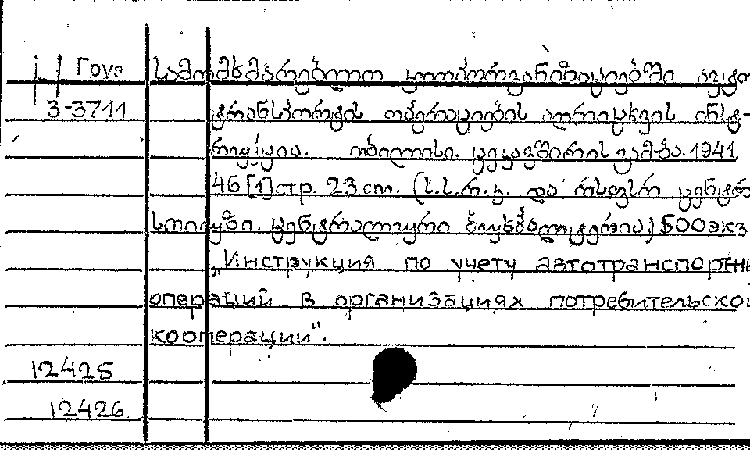 Груз
სამომხმარებლო კოოპორგანიზაციებში ავტო
3-3711
ტრანსპორტის ოპერაციების აღრიცხვის ინსტ-
რუქცია. თბილისი. ცეკავშირის გამ-ბა. 1941
46 [1] стр. 23 cm. (ს.ს.რ.კ. და რსფსრ ცენტრო
სოიუზი. ცენტრალური ბუხჰალტერია) 500 экз.
„Инструкция по учету автотранспортн
операций в организациях потребительской
кооперации".
12425
12426